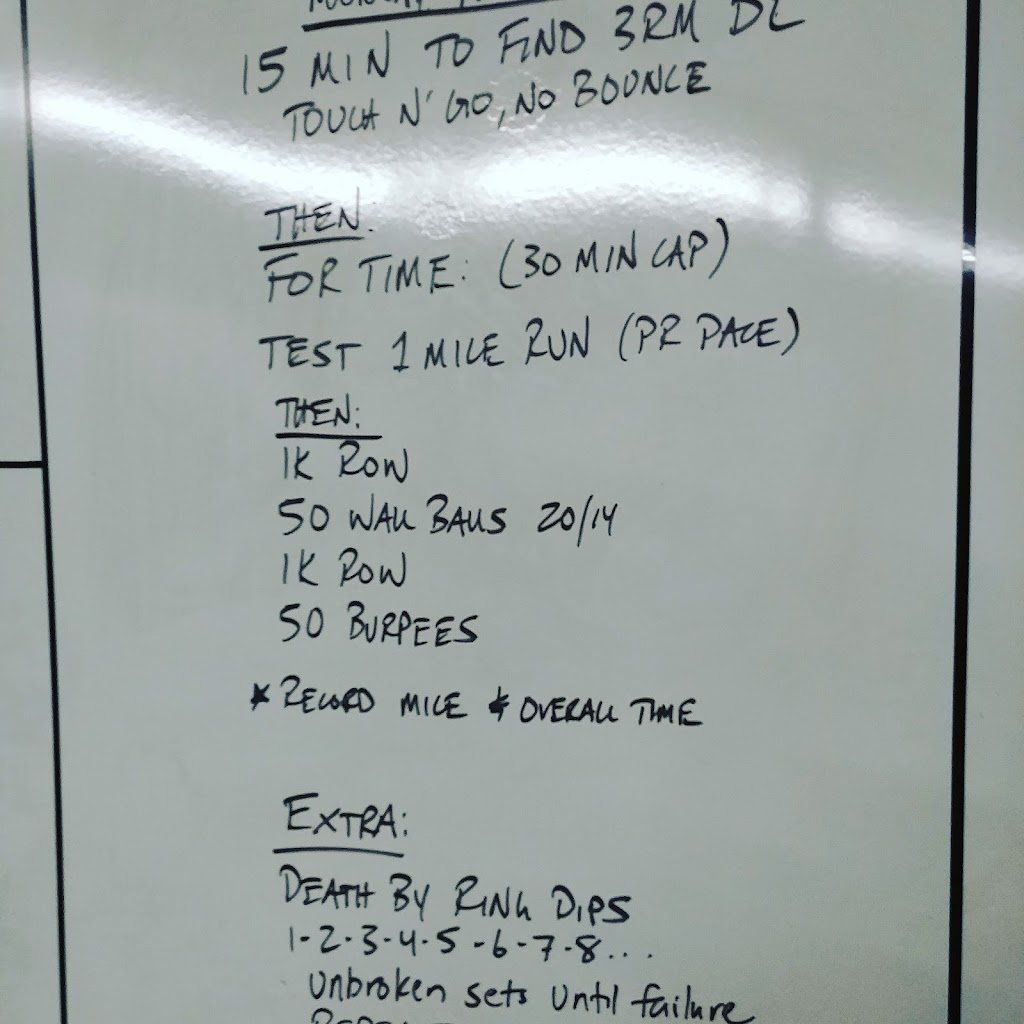 15 MIN TO FIND 3RM DL
TOUCH N' GO, NO BOUNCE
THEN:
FOR TIME: (30 MIN CAP)
TEST 1 MILE RUN (PR PACE)
THEN:
1K ROW
50 WALL BALLS 20/14
1K ROW
50 BURPEES
* RECORD MILE & OVERALL TIME
EXTRA:
DEATH BY RING DIPS
1-2-3-4-5-6-7-8...
unbroken sets until failure